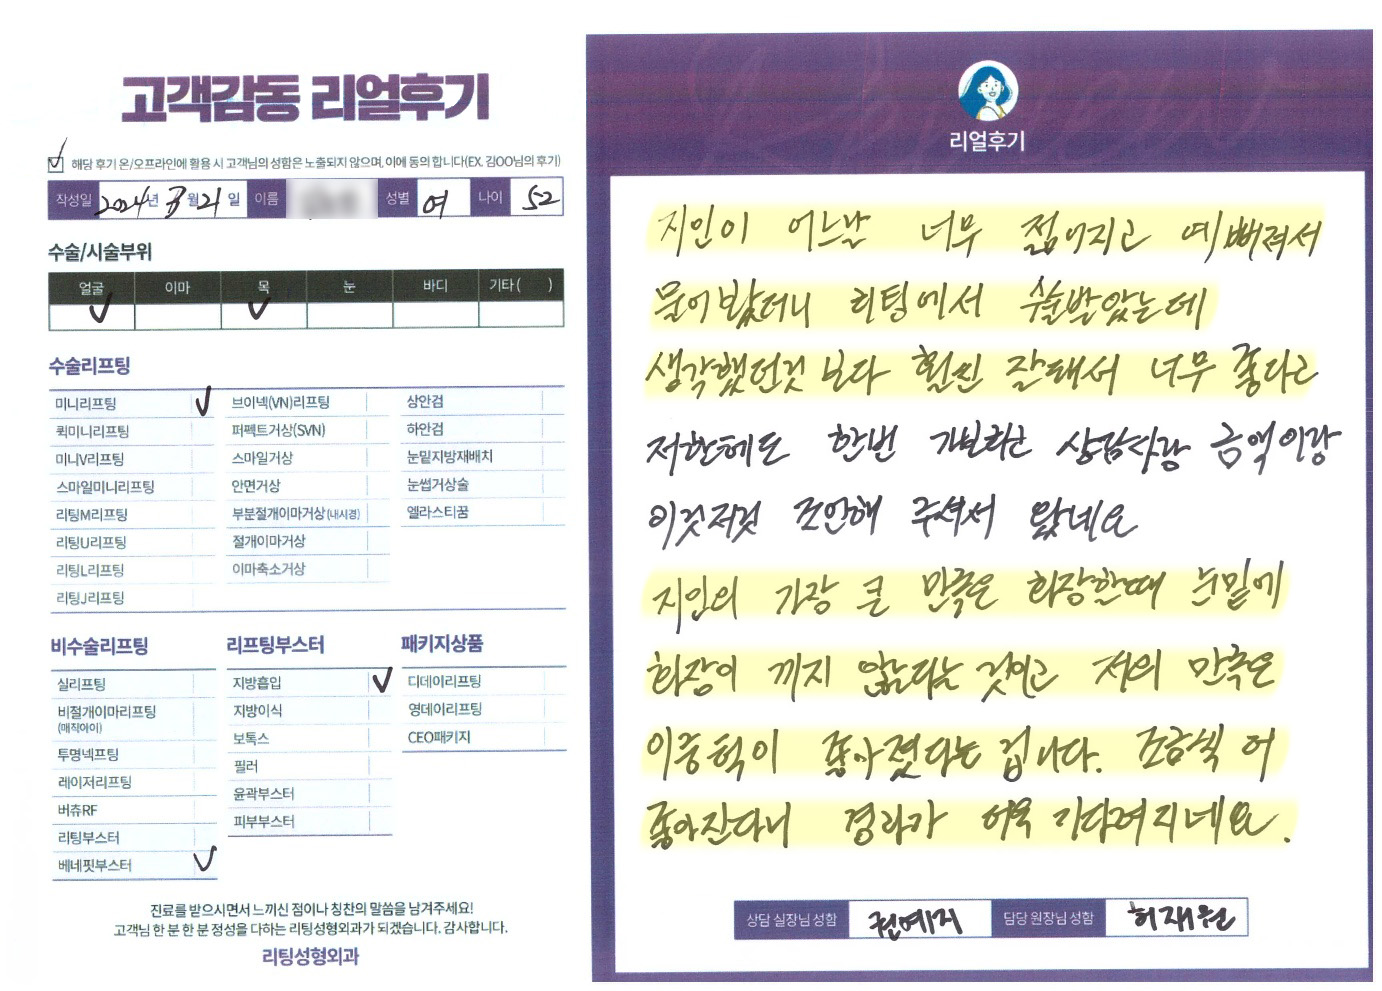 고객감동 리얼후기
해당 후기 온/오프라인에 활용 시 고객님의 성함은 노출되지 않으며, 이에 동의 합니다(EX. 김OO님의 후기)
작성일 2024년 3월 21일 이름 성별 여 나이 52
수술/시술부위
얼굴 이마 목 눈 바디 기타( )
수술리프팅
미니리프팅 브이넥(VN)리프팅 상안검
퀵미니리프팅 퍼펙트거상(SVN) 하안검
미니V리프팅 스마일거상 눈밑지방재배치
스마일미니리프팅 안면거상 눈썹거상술
리팅M리프팅 부분절개이마거상(내시경) 엘라스티꿈
리팅U리프팅 절개이마거상
리팅L리프팅 이마축소거상
리팅J리프팅
비수술리프팅 리프팅부스터 패키지상품
실리프팅 지방흡입 디데이리프팅
비절개이마리프팅 지방이식 영데이리프팅
(매직아이)
투명넥프팅 보톡스 CEO패키지
레이저리프팅 필러
버츄RF 윤곽부스터
리팅부스터 피부부스터
베네핏부스터
진료를 받으시면서 느끼신 점이나 칭찬의 말씀을 남겨주세요!
고객님 한 분 한 분 정성을 다하는 리팅성형외과가 되겠습니다. 감사합니다.
리팅성형외과
리얼후기
지인이 어느날 너무 젊어지고 예뻐져서
물어봤더니 리팅에서 수술받았는데
생각했던것 보다 훨씬 잘돼서 너무 좋다고
저한테도 한번 가보라고 상담사랑 금액이랑
이것저것 조언해 주셔서 왔네요
지인의 가장 큰 만족은 화장할때 눈밑에
화장이 끼지 않는다는 것이고 저의 만족은
이중턱이 좋아졌다는 겁니다. 조금씩 더
좋아진다니 경과가 더욱 기다려지네요.
상담 실장님 성함 권예지 담당 원장님 성함 허재원